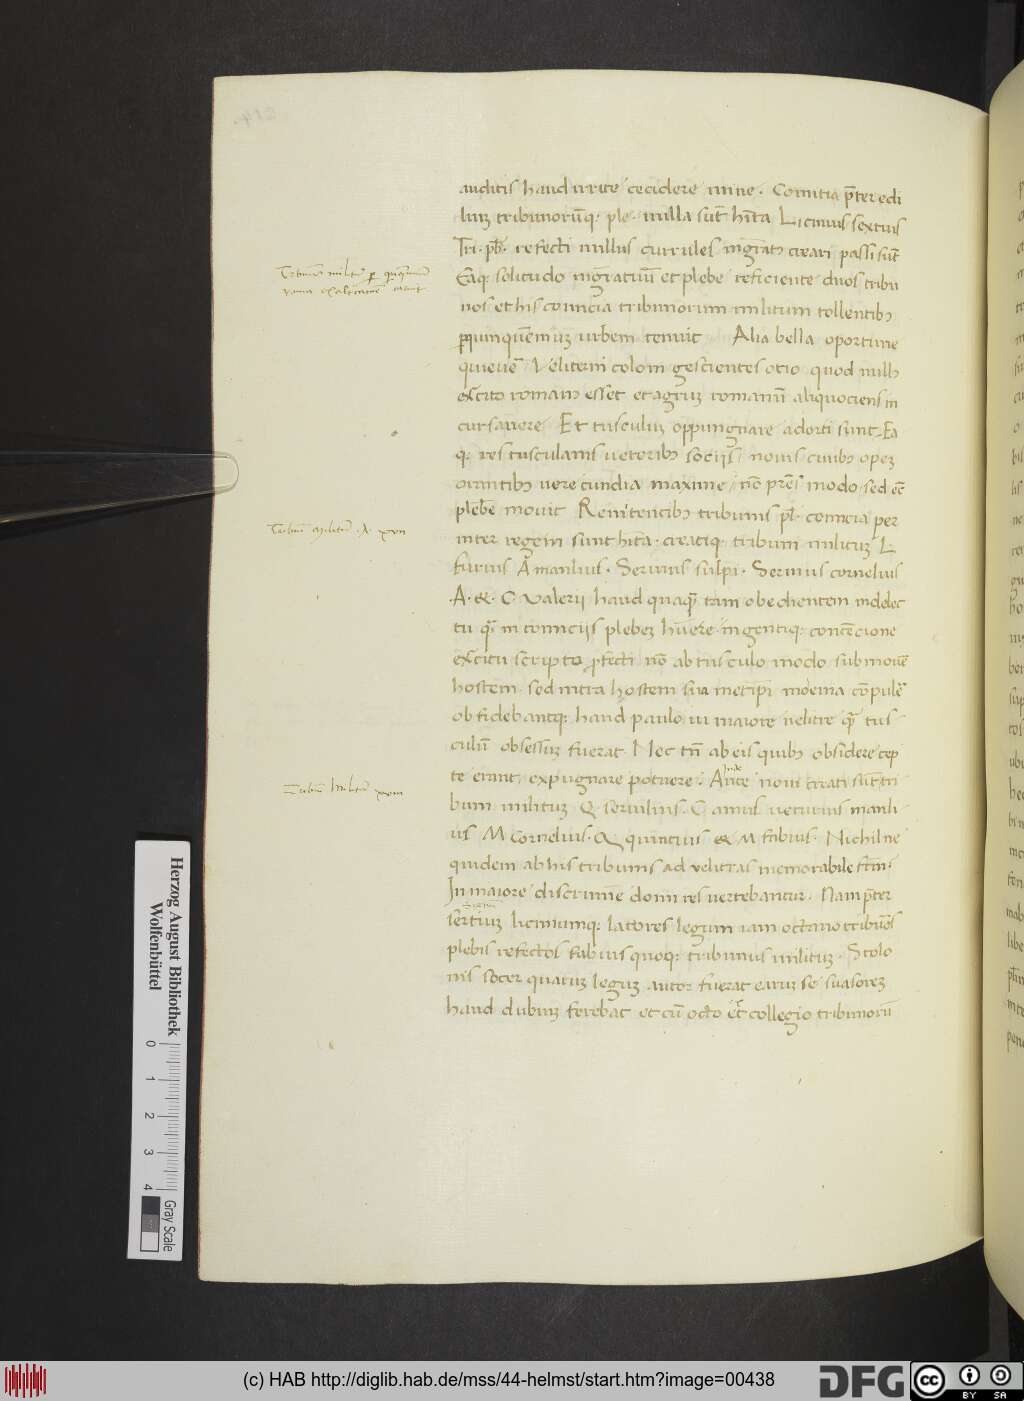 auditis haud irrite cecidere mine. Comitia p̄ter edi
lium tribunorūq; ple. nulla sūt hīta Licinius sextius
Tri. pb̄. refecti nullus currules mḡratꝯ creari passi sūt
Eaq; solitudo mḡratuū et plebe reficiente duos tribu
nos et his comicia tribunorum militum tollentibꝯ
ꝑ quinquēniuꝫ urbem tenuit Alia bella oportune
quieuē Veliterni coloni gestientes otio quod nullꝯ
exc̄itꝯ romanꝯ esset et agruꝫ romanū aliquociens in
cursauere Et tusculuꝫ oppungnare adorti sunt. Ea
q; res tusculanis ueteribꝯ sociis nouis ciuibꝯ opeꝫ
orantibꝯ uerecundia maxime nō p̄res modo sed eē
plebē mouit Remitentibꝯ tribunis pl. comicia per
inter regem sunt hita. creatiq; tribuni milituꝫ L
furius A manlius. Seruius sulpi. Seruius cornelius
.A. & . C Valerii haud quaq̄ tam obedientem in delec
tu q̄ in comiciis plebeꝫ huere ingentiq; contēcione
exc̄itu scripto ꝓfecti nō ab tusculo modo submouē
hostem. sed intra hostem sua metip̄i moenia cōpulē
obsidebantq; haud paulo ui maiore uelitre q̄ tus
culū obsessuꝫ fuerat Nec tn̄ ab eis quibꝯ obsidere cep
te erant, expugnare potuere. Ante noui creati sūt tri
buni milituꝫ Q seruilius. C amus ueturius manli
us M Cornelius. Q quinctius & M fabius. Nichil ne
quidem ab his tribunis ad velitras memorabile fc̄m
In maiore discrimīe domi res vertebantur. Nam p̄ter
sertiuꝫ liciniumq; latores legum iam octauo tribūos
plebis refectos fabius quoq; tribunus milituꝫ. Stolo
nis socer quaruꝫ leguꝫ autor fuerat earuꝫ se suasoreꝫ
haud dubiuꝫ ferebat et cū octo ēt collegio tribunorū
Tribuni Militū . A . xxvii
Tribuni Militū xxviii
Herzog August Bibliothek
Wolfenbüttel
0 1 2 3 4
Gray Scale
(c) HAB http://diglib.hab.de/mss/44-helmst/start.htm?image=00438
DFG
cc BY SA